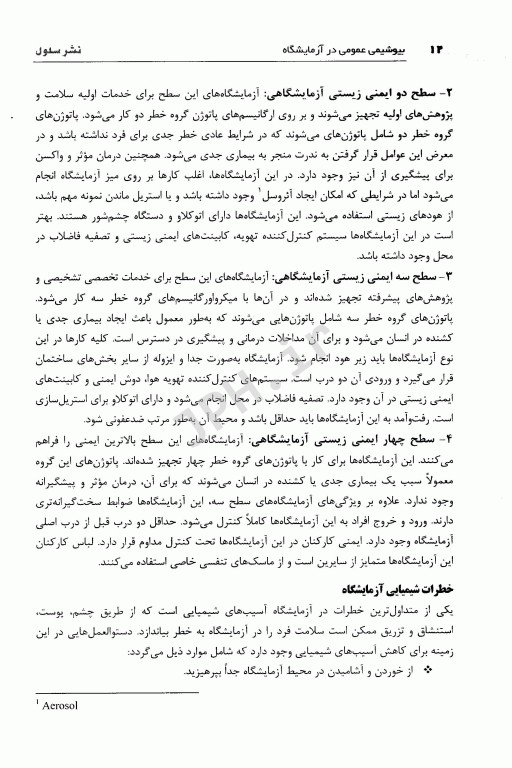 ۱۴ بیوشیمی عمومی در آزمایشگاه نشر سلول
۲- سطح دو ایمنی زیستی آزمایشگاهی: آزمایشگاه‌های این سطح برای خدمات اولیه سلامت و
پژوهش‌های اولیه تجهیز می‌شوند و بر روی ارگانیسم‌های پاتوژن گروه خطر دو کار می‌شود. پاتوژن‌های
گروه خطر دو شامل پاتوژن‌های می‌شوند که در شرایط عادی خطر جدی برای فرد نداشته باشد و در
معرض این عوامل قرار گرفتن به ندرت منجر به بیماری جدی می‌شود. همچنین درمان مؤثر و واکسن
برای پیشگیری از آن نیز وجود دارد. در این آزمایشگاه‌ها، اغلب کارها بر روی میز آزمایشگاه انجام
می‌شود اما در شرایطی که امکان ایجاد آئروسل۱ وجود داشته باشد و یا استریل ماندن نمونه مهم باشد،
از هودهای زیستی استفاده می‌شود. این آزمایشگاه‌ها دارای اتوکلاو و دستگاه چشم‌شور هستند. بهتر
است در این آزمایشگاه‌ها سیستم کنترل‌کننده تهویه، کابینت‌های ایمنی زیستی و تصفیه فاضلاب در
محل وجود داشته باشد.
۳- سطح سه ایمنی زیستی آزمایشگاهی: آزمایشگاه‌های این سطح برای خدمات تخصصی تشخیصی و
پژوهش‌های پیشرفته تجهیز شده‌اند و در آن‌ها با میکرواورگانیسم‌های گروه خطر سه کار می‌شود.
پاتوژن‌های گروه خطر سه شامل پاتوژن‌هایی می‌شوند که به‌طور معمول باعث ایجاد بیماری جدی یا
کشنده در انسان می‌شود و برای آن مداخلات درمانی و پیشگیری در دسترس است. کلیه کارها در این
نوع آزمایشگاه‌ها باید زیر هود انجام شود. آزمایشگاه به‌صورت جدا و ایزوله از سایر بخش‌های ساختمان
قرار می‌گیرد و ورودی آن دو درب است. سیستم‌های کنترل‌کننده تهویه هوا، دوش ایمنی و کابینت‌های
ایمنی زیستی در آن وجود دارد. تصفیه فاضلاب در محل انجام می‌شود و دارای اتوکلاو برای استریل‌سازی
است. رفت‌وآمد به این آزمایشگاه‌ها باید حداقل باشد و محیط آن به‌طور مرتب ضدعفونی شود.
۴- سطح چهار ایمنی زیستی آزمایشگاهی: آزمایشگاه‌های این سطح بالاترین ایمنی را فراهم
می‌کنند. این آزمایشگاه‌ها برای کار با پاتوژن‌های گروه خطر چهار تجهیز شده‌اند. پاتوژن‌های این گروه
معمولاً سبب یک بیماری جدی یا کشنده در انسان می‌شوند که برای آن، درمان مؤثر و پیشگیرانه
وجود ندارد. علاوه بر ویژگی‌های آزمایشگاه‌های سطح سه، این آزمایشگاه‌ها ضوابط سخت‌گیرانه‌تری
دارند. ورود و خروج افراد به این آزمایشگاه‌ها کاملاً کنترل می‌شود. حداقل دو درب قبل از درب اصلی
آزمایشگاه وجود دارد. ایمنی کارکنان در این آزمایشگاه‌ها تحت کنترل مداوم قرار دارد. لباس کارکنان
این آزمایشگاه‌ها متمایز از سایرین است و از ماسک‌های تنفسی خاصی استفاده می‌کنند.
خطرات شیمیایی آزمایشگاه
یکی از متداول‌ترین خطرات در آزمایشگاه آسیب‌های شیمیایی است که از طریق چشم، پوست،
استنشاق و تزریق ممکن است سلامت فرد را در آزمایشگاه به خطر بیاندازد. دستوالعمل‌هایی در این
زمینه برای کاهش آسیب‌های شیمیایی وجود دارد که شامل موارد ذیل می‌گردد:
❖ از خوردن و آشامیدن در محیط آزمایشگاه جداً بپرهیزید.
1 Aerosol
JPH.ir